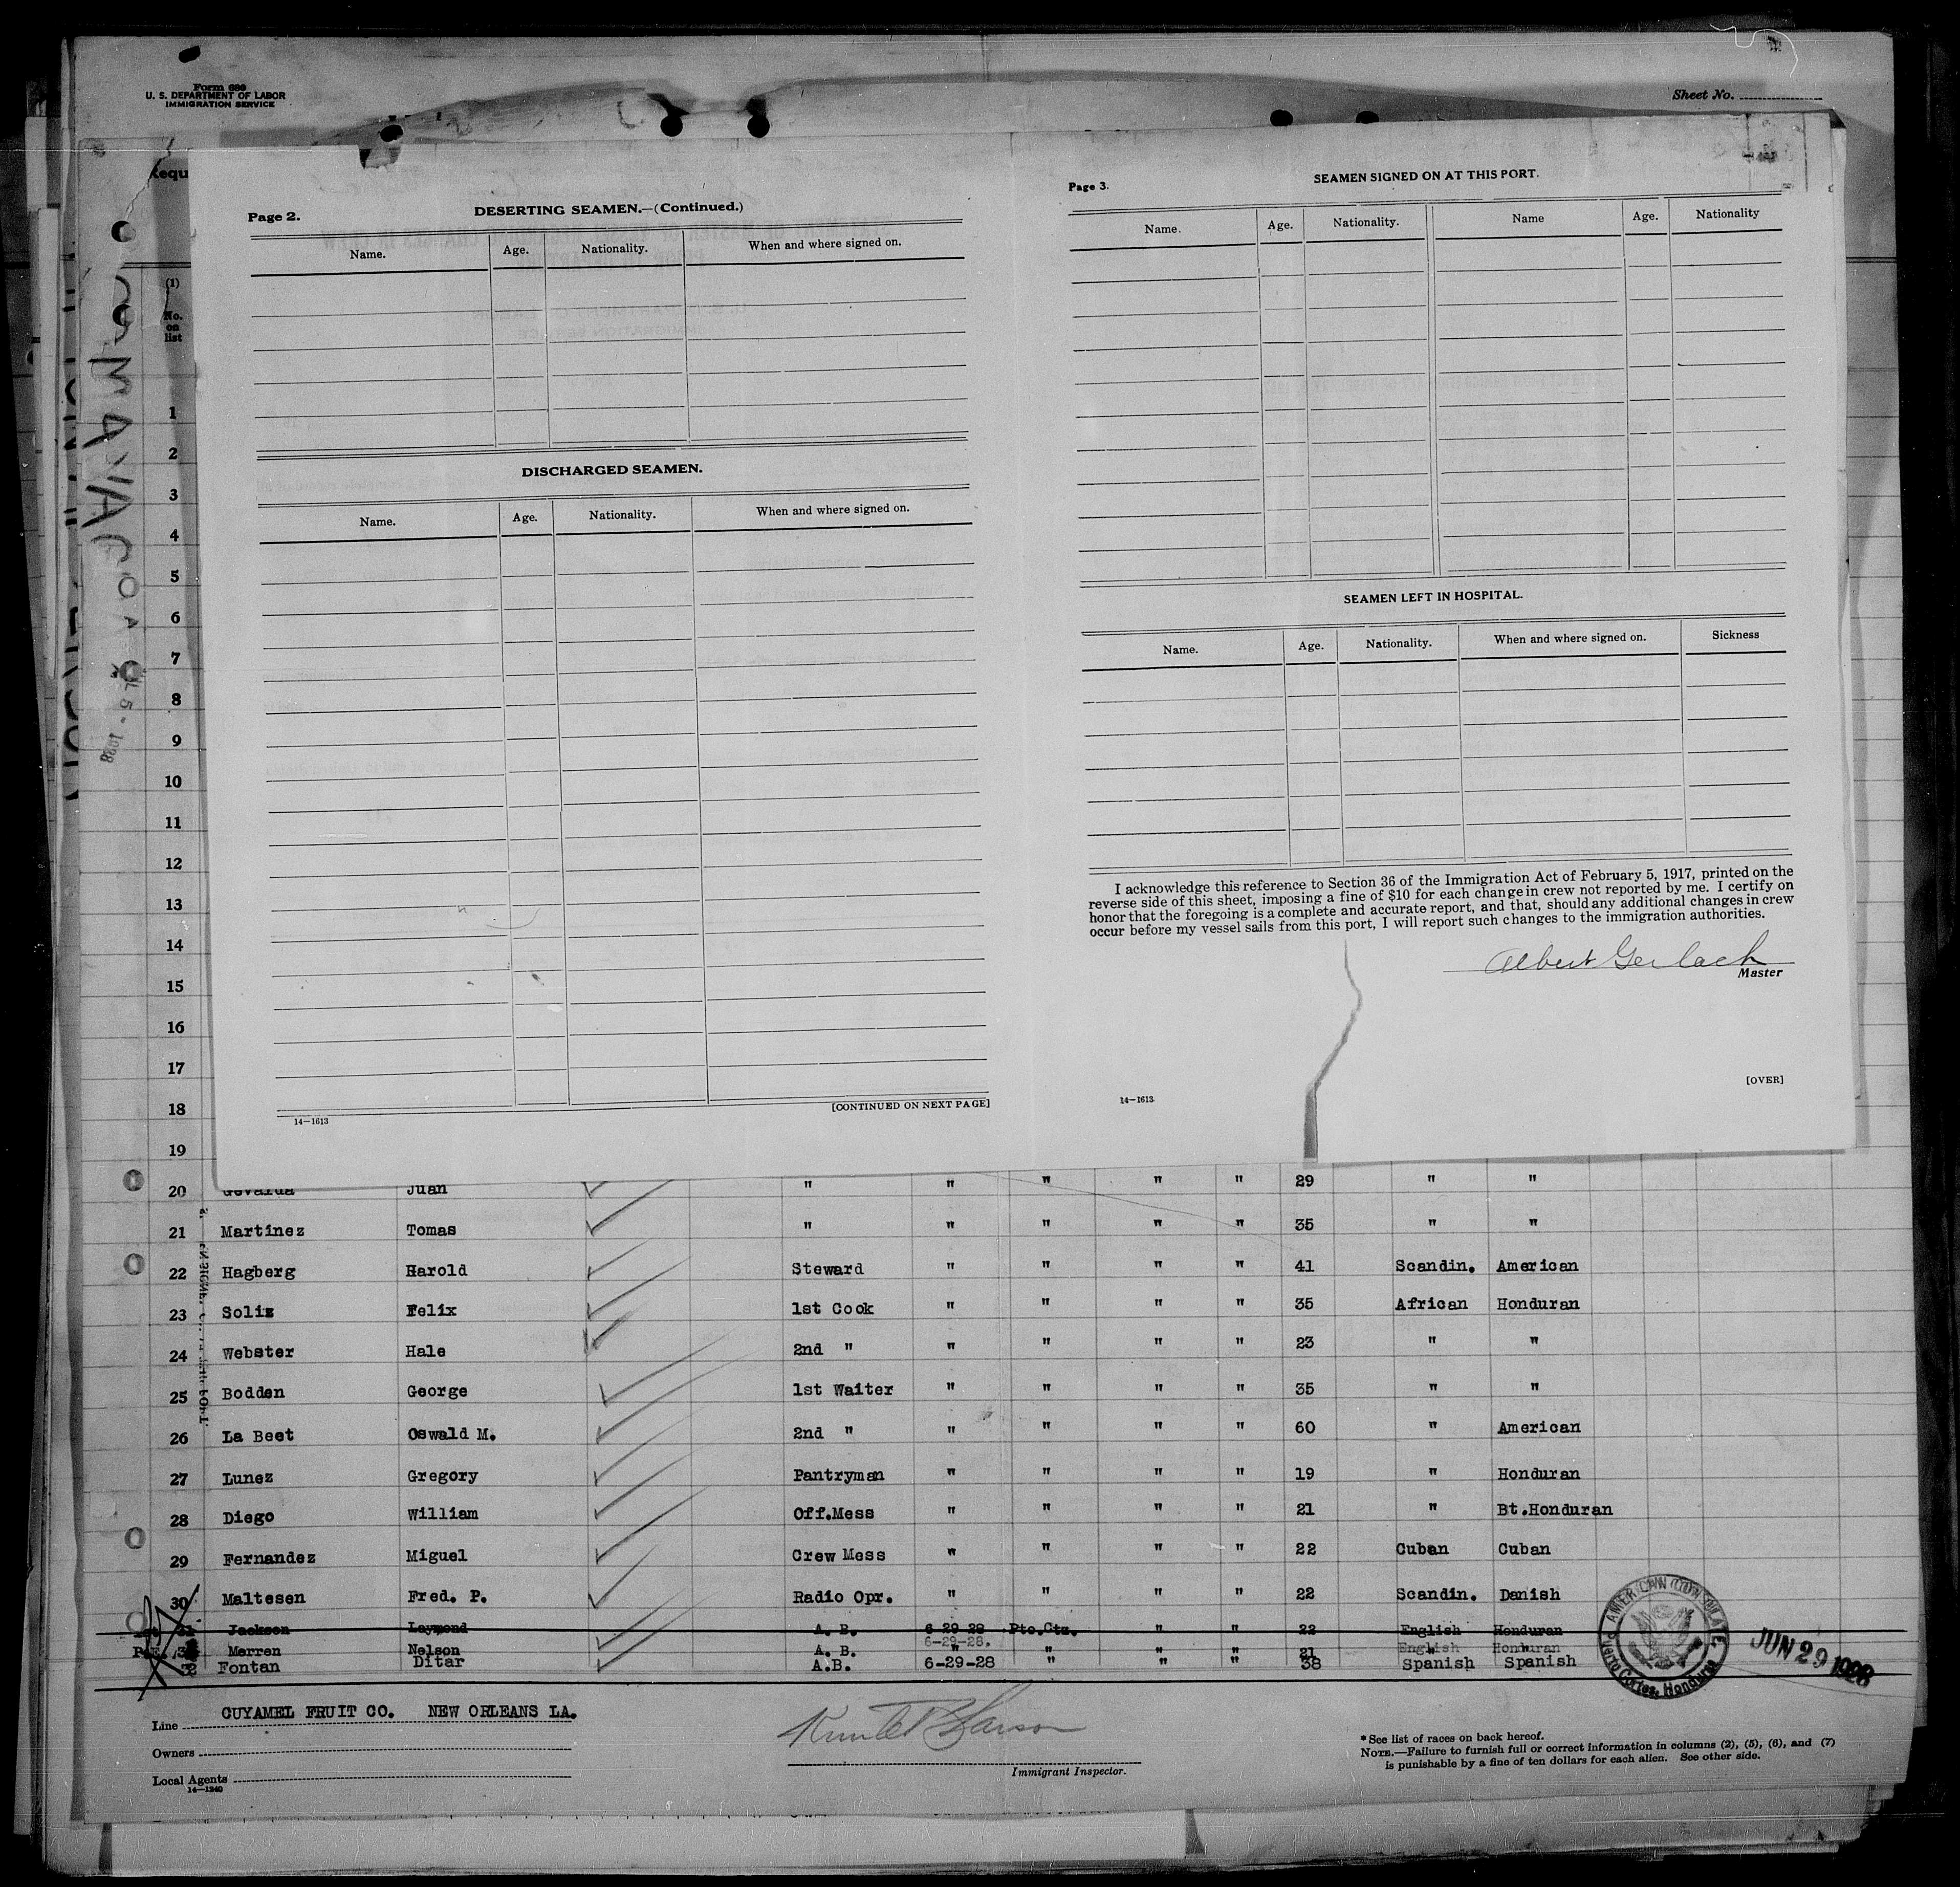 Form 689
U. S. DEPARTMENT OF LABOR
IMMIGRATION SERVICE
Sheet No.
Requ
(1)
No.
on
list
Page 2.
DESERTING SEAMEN.—(Continued.)
Name. Age. Nationality. When and where signed on.
DISCHARGED SEAMEN.
Name. Age. Nationality. When and where signed on.
14—1613
[CONTINUED ON NEXT PAGE]
Page 3.
SEAMEN SIGNED ON AT THIS PORT.
Name. Age. Nationality. Name Age. Nationality
SEAMEN LEFT IN HOSPITAL.
Name. Age. Nationality. When and where signed on. Sickness
I acknowledge this reference to Section 36 of the Immigration Act of February 5, 1917, printed on the
reverse side of this sheet, imposing a fine of $10 for each change in crew not reported by me. I certify on
honor that the foregoing is a complete and accurate report, and that, should any additional changes in crew
occur before my vessel sails from this port, I will report such changes to the immigration authorities.
Albert Gerlach
Master
14—1613
[OVER]
1
2
3
4
5
6
7
8
9
10
11
12
13
14
15
16
17
18
19
20 Juan " " " " " 29 " "
21 Martinez Tomas " " " " " 35 " "
22 Hagberg Harold Steward " " " " 41 Scandin. American
23 Soliz Felix 1st Cook " " " " 35 African Honduran
24 Webster Hale 2nd " " " " " 23 " "
25 Bodden George 1st Waiter " " " " 35 " "
26 La Beet Oswald M. 2nd " " " " " 60 " American
27 Lunez Gregory Pantryman " " " " 19 " Honduran
28 Diego William Off.Mess " " " " 21 " Bt.Honduran
29 Fernandez Miguel Crew Mess " " " " 22 Cuban Cuban
30 Maltesen Fred. P. Radio Opr. " " " " 22 Scandin. Danish
Jackson Laymond A. B. 6-29-28 Pto.Ctz. " " 22 English Honduran
Merren Nelson A. B. 6-29-28. " " " 21 English Honduran
Fontan Ditar A.B. 6-29-28 " " " 38 Spanish Spanish
AMERICAN CONSULATE,
Puerto Cortes, Honduras
JUN 29 1928
Line CUYAMEL FRUIT CO. NEW ORLEANS LA.
Owners
Local Agents
14—1240
Immigrant Inspector.
* See list of races on back hereof.
NOTE.—Failure to furnish full or correct information in columns (2), (5), (6), and (7)
is punishable by a fine of ten dollars for each alien. See other side.